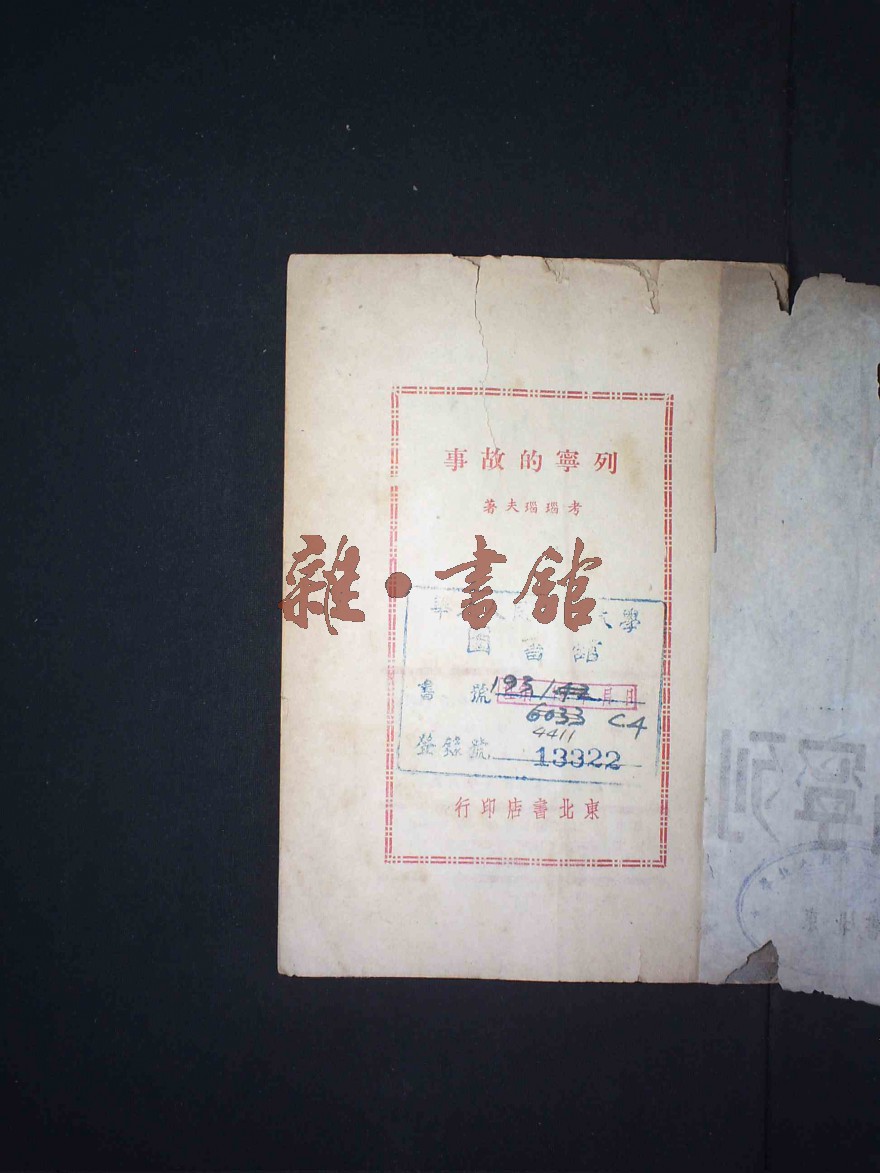 列寧的故事
考瑙瑙夫著
雜·書館
大學
圖書館
書號 193/
6033 C4
4411
登錄號 13322
東北書店印行